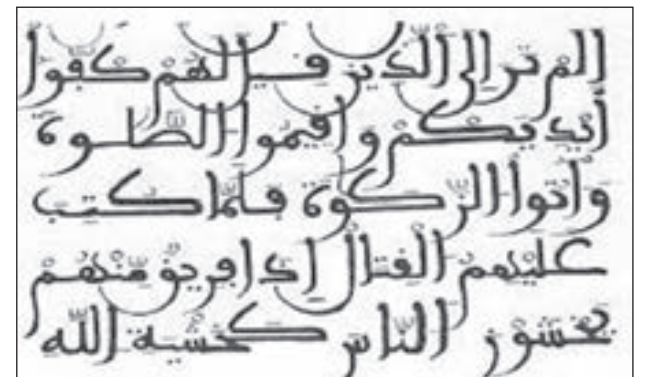 الم تر الى الذين قيل لهم كفوا
أيديكم واقيموا الصلوة
واتوا الزكوة فلما كتب
عليهم القتال اذا فريق منهم
يخشون الناس كخشية الله